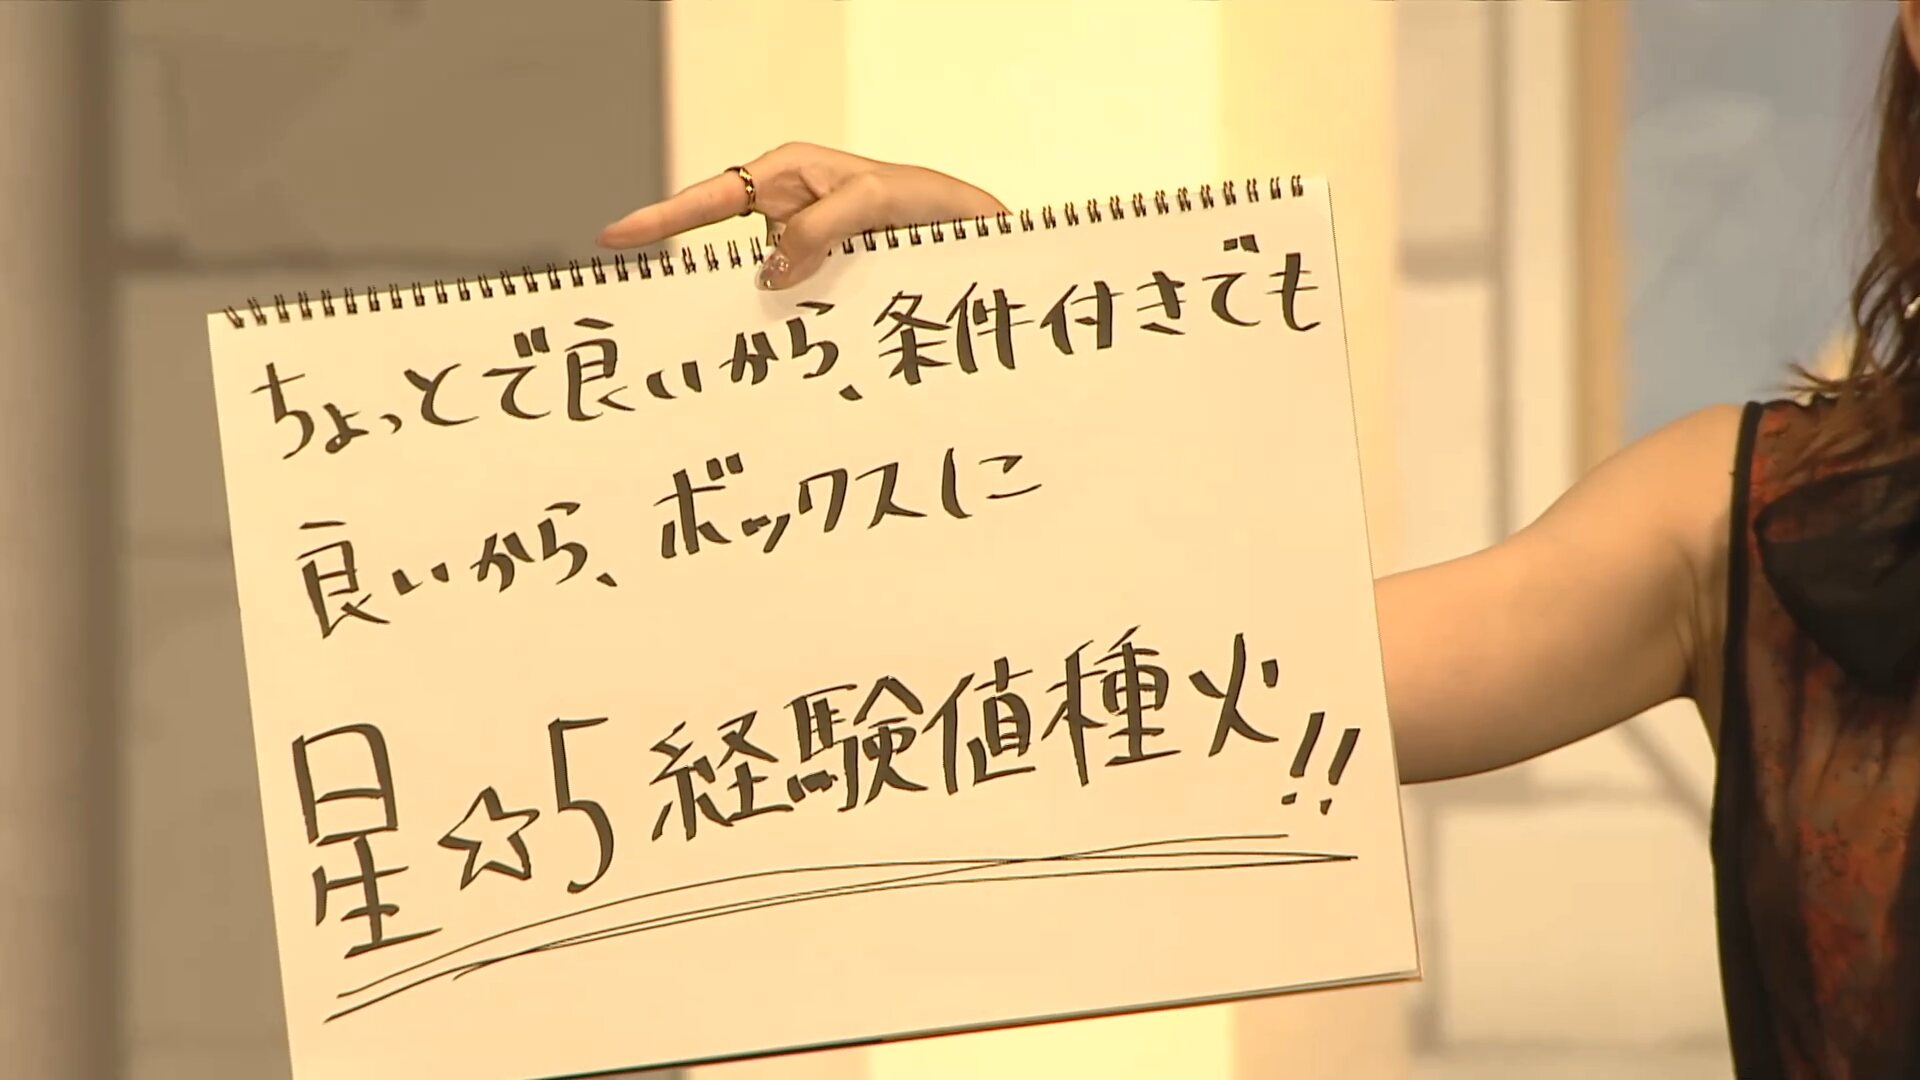 ちょっとで良いから、条件付きでも
良いから、ボックスに
星☆5経験値種火!!